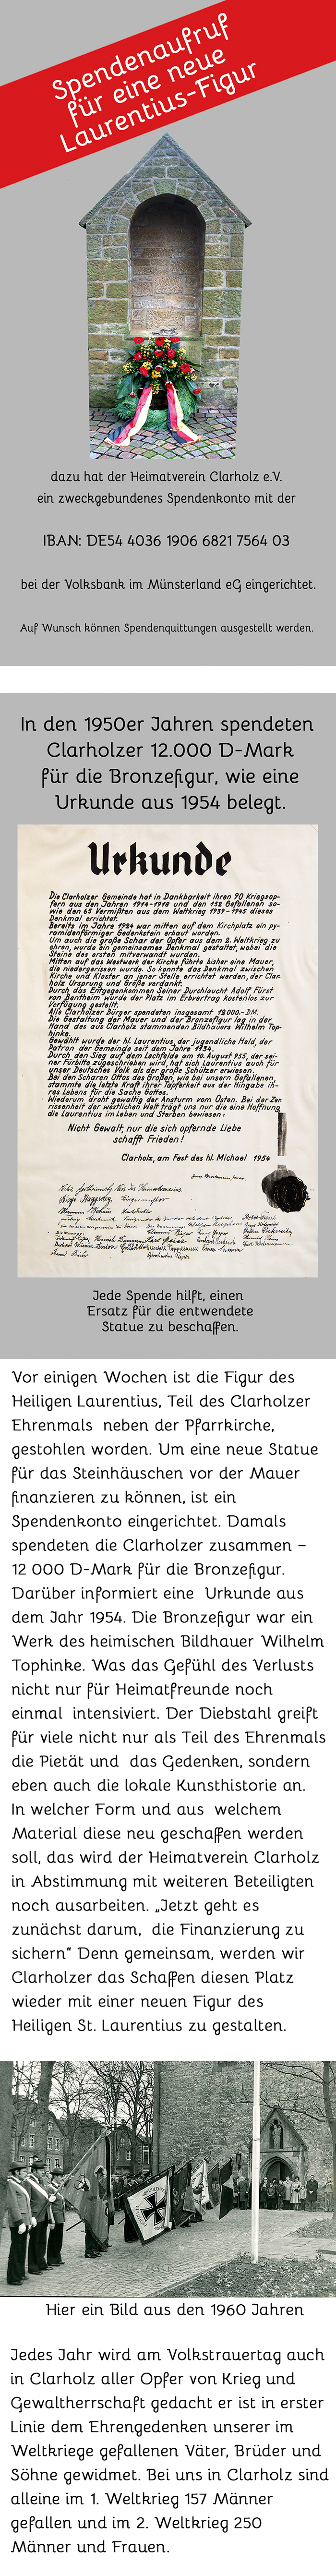 Spendenaufruf
für eine neue
Laurentius-Figur
dazu hat der Heimatverein Clarholz e.V.
ein zweckgebundenes Spendenkonto mit der
IBAN: DE54 4036 1906 6821 7564 03
bei der Volksbank im Münsterland eG eingerichtet.
Auf Wunsch können Spendenquittungen ausgestellt werden.
In den 1950er Jahren spendeten
Clarholzer 12.000 D-Mark
für die Bronzefigur, wie eine
Urkunde aus 1954 belegt.
Urkunde
Die Clarholzer Gemeinde hat in Dankbarkeit ihren 90 Kriegsop-
fern aus den Jahren 1914-1918 und den 122 Gefallenen so-
wie den 65 Vermißten aus dem Weltkrieg 1939-1945 dieses
Denkmal errichtet.
Bereits im Jahre 1924 war mitten auf dem Kirchplatz ein py-
ramidenförmiger Gedenkstein erbaut worden.
Um auch die große Schar der Opfer aus dem 2. Weltkrieg zu
ehren, wurde ein gemeinsames Denkmal gesetzt, wobei die
Steine des ersten mitverwandt wurden.
Mitten auf das Westende der Kirche führte bisher eine Mauer,
die niedergerissen wurde. So konnte das Denkmal zwischen
Kirche und Kloster an jener Stelle errichtet werden, der Clar-
holz Ursprung und Größe verdankt.
Durch das Entgegenkommen Seiner Durchlaucht Adolf Fürst
von Bentheim wurde der Platz im Erbvertrag kostenlos zur
Verfügung gestellt.
Alle Clarholzer Bürger spendeten insgesamt 12.000.-DM.
Die Gestaltung der Mauer und der Bronzefigur lag in der
Hand des aus Clarholz stammenden Bildhauers Wilhelm Top-
hinke.
Gewählt wurde der hl. Laurentius, der jugendliche Held, der
Patron der Gemeinde seit dem Jahre 1134.
Durch den Sieg auf dem Lechfelde am 10. August 955, der sei-
ner Fürbitte zugeschrieben wird, hat sich Laurentius auch für
unser Deutsches Volk als der große Schützer erwiesen.
Bei den Soldaten Opfern wie bei unsern Gefallenen,
stammte die letzte Kraft ihres Opfertodes aus der Hingabe ih-
res Lebens für die Sache Gottes.
Wiederum ist gewaltig der Ansturm vom Osten. Bei der Zer-
rissenheit der westlichen Welt trägt uns nur die eine Hoffnung
die Laurentius in seinem Leben und Sterben bewies:
Nicht Gewalt, nur die sich opfernde Liebe
schafft Frieden!
Clarholz, am Fest des hl. Michael 1954
Jede Spende hilft, einen
Ersatz für die entwendete
Statue zu beschaffen.
Vor einigen Wochen ist die Figur des
Heiligen Laurentius, Teil des Clarholzer
Ehrenmals neben der Pfarrkirche,
gestohlen worden. Um eine neue Statue
für das Steinhäuschen vor der Mauer
finanzieren zu können, ist ein
Spendenkonto eingerichtet. Damals
spendeten die Clarholzer zusammen –
12 000 D-Mark für die Bronzefigur.
Darüber informiert eine Urkunde aus
dem Jahr 1954. Die Bronzefigur war ein
Werk des heimischen Bildhauer Wilhelm
Tophinke. Was das Gefühl des Verlusts
nicht nur für Heimatfreunde noch
einmal intensiviert. Der Diebstahl greift
für viele nicht nur als Teil des Ehrenmals
die Pietät und das Gedenken, sondern
eben auch die lokale Kunsthistorie an.
In welcher Form und aus welchem
Material diese neu geschaffen werden
soll, das wird der Heimatverein Clarholz
in Abstimmung mit weiteren Beteiligten
noch ausarbeiten. „Jetzt geht es
zunächst darum, die Finanzierung zu
sichern“ Denn gemeinsam, werden wir
Clarholzer das Schaffen diesen Platz
wieder mit einer neuen Figur des
Heiligen St. Laurentius zu gestalten.
Hier ein Bild aus den 1960 Jahren
Jedes Jahr wird am Volkstrauertag auch
in Clarholz aller Opfer von Krieg und
Gewaltherrschaft gedacht er ist in erster
Linie dem Ehrengedenken unserer im
Weltkriege gefallenen Väter, Brüder und
Söhne gewidmet. Bei uns in Clarholz sind
alleine im 1. Weltkrieg 157 Männer
gefallen und im 2. Weltkrieg 250
Männer und Frauen.